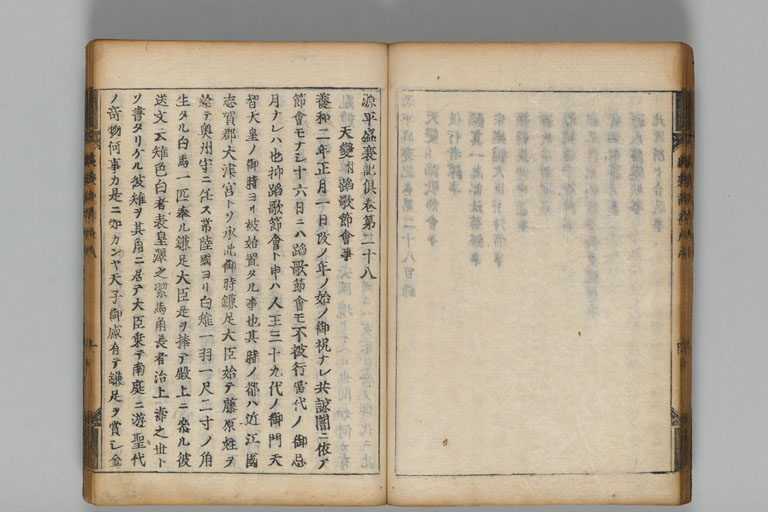 源平盛衰記倶巻第二十八
天變 踏歌節會事
養和二年正月一日改ノ年ノ始ノ御祝ナレ共諒闇ニ依テ
節會モナシ十六日ニハ踏歌節會モ不被行當代ノ御忌
月ナレハ也抑踏歌節會ト申ハ人王三十九代ノ御門天
智天皇ノ御時ヨリ被始置タル事也其時ノ都ハ近江國
志賀郡大津宮トソ承此御時鎌足大臣始テ藤原姓ヲ
給テ奥州守ニ任ス常陸國ヨリ白雉一羽一尺二寸ノ角
生タル白馬一匹奉ル鎌足大臣是ヲ捧テ殿上ニ參ル彼
送文ニ云雉色白者表皇澤之潔馬角長者治上壽之世ト
ソ書タリケル彼雉ヲ其角ニ居テ大臣乘テ南庭ニ遊聖代
ノ奇物何事カ是ニ如カンヤ天子御感有テ鎌足ヲ賞シ金